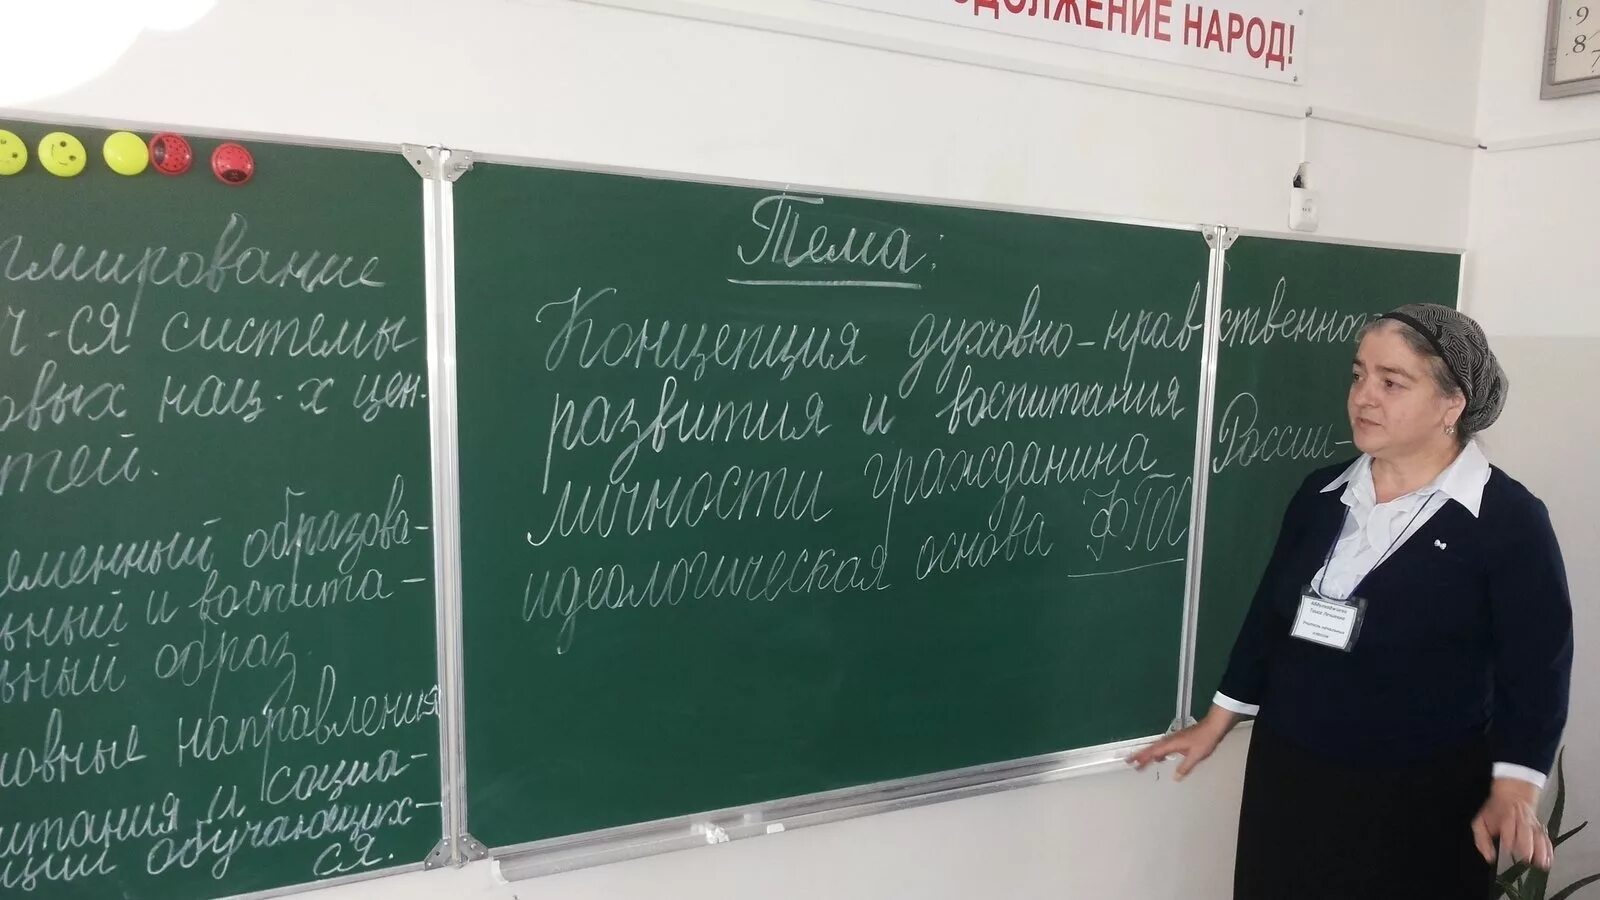 НАРОД!
9
8
7
мирование
ч-ся системы
овых нац-х цен-
тей.
еменный образова-
ьный и воспита-
ьный образ.
овные направления
итания и социа-
ции обучающих-
ся.
Тема:
Концепция духовно-нравственного
развития и воспитания
личности гражданина России-
идеологическая основа ФГОС
Учитель начальных
классов